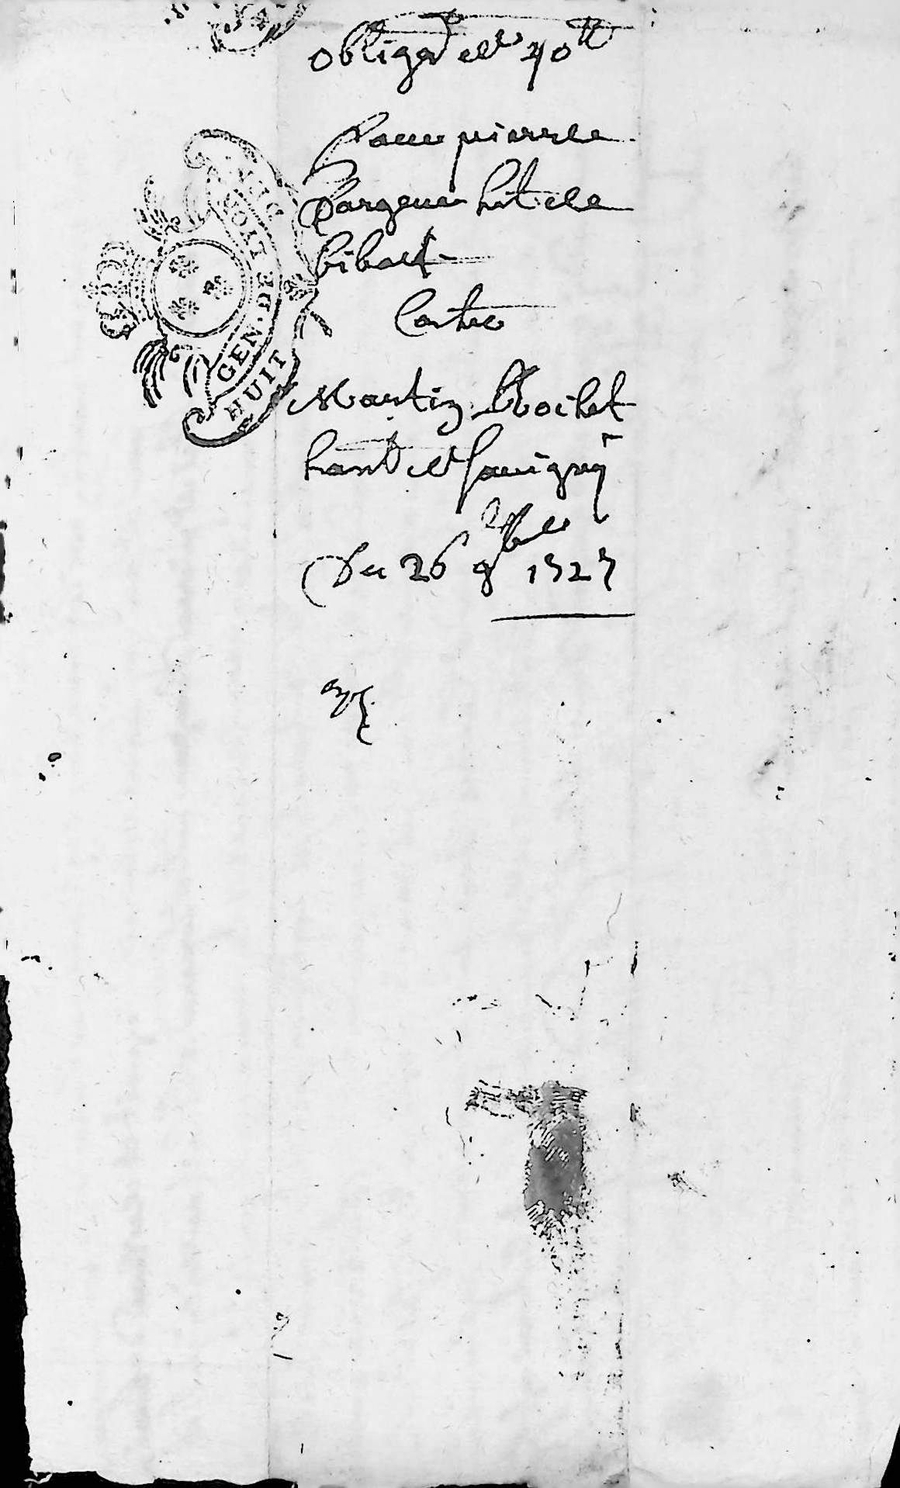 obliga͞on de 40ᵗᵗ
Pour pierre
Dargeur hât de
bibost
Contre
Martin Rochet
hant de Savigny
Du 26 9bre 1727
GEN·DE
HUIT